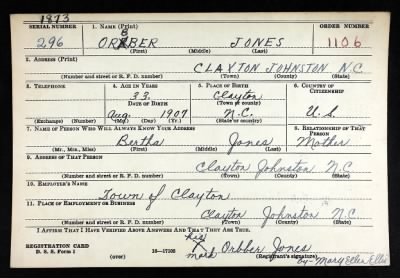 1873
SERIAL NUMBER 1. NAME (Print) ORDER NUMBER
296 ORBBER JONES 1106
(First) (Middle) (Last)
2. ADDRESS (Print)
CLAYTON JOHNSTON N.C.
(Number and street or R. F. D. number) (Town) (County) (State)
3. TELEPHONE 4. AGE IN YEARS 5. PLACE OF BIRTH 6. COUNTRY OF CITIZENSHIP
33 Clayton
DATE OF BIRTH (Town or county)
Aug. 1907 N.C. U.S.
(Exchange) (Number) (Mo.) (Day) (Yr.) (State or country)
7. NAME OF PERSON WHO WILL ALWAYS KNOW YOUR ADDRESS 8. RELATIONSHIP OF THAT PERSON
Bertha Jones Mother
(Mr., Mrs., Miss) (First) (Middle) (Last)
9. ADDRESS OF THAT PERSON
Clayton Johnston N.C
(Number and street or R. F. D. number) (Town) (County) (State)
10. EMPLOYER'S NAME
Town of Clayton
11. PLACE OF EMPLOYMENT OR BUSINESS
Clayton Johnston N.C
(Number and street or R. F. D. number) (Town) (County) (State)
I AFFIRM THAT I HAVE VERIFIED ABOVE ANSWERS AND THAT THEY ARE TRUE.
his
REGISTRATION CARD Orbber Jones
D. S. S. Form 1 (over) 16—17105 mark (Registrant's signature)
by- Mary Ellen Ellis